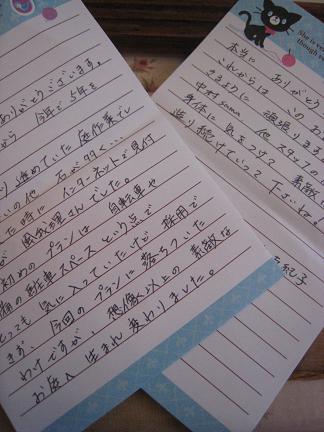 ありがとうございます。
から 今年で5年を
り進めていた 庭作業でし
いの他 石が多く…
た時に インターネットで見付
風処理さんでした。
初めのプランは 自転車や
輌の駐車スペースという点で
とっても 気に入っていたけど 採用で
きず、今回のプランに 落ちついた
わけですが、想像以上の 素敵な
お庭へ 生まれ変わりました。
本当に ありがとう
これからは このお
きるように 頑張ります
中村sama 他 スタッフの
身体に 気をつけて 素敵
造り続けていって 下さいね。
紀子
She is ve
though v